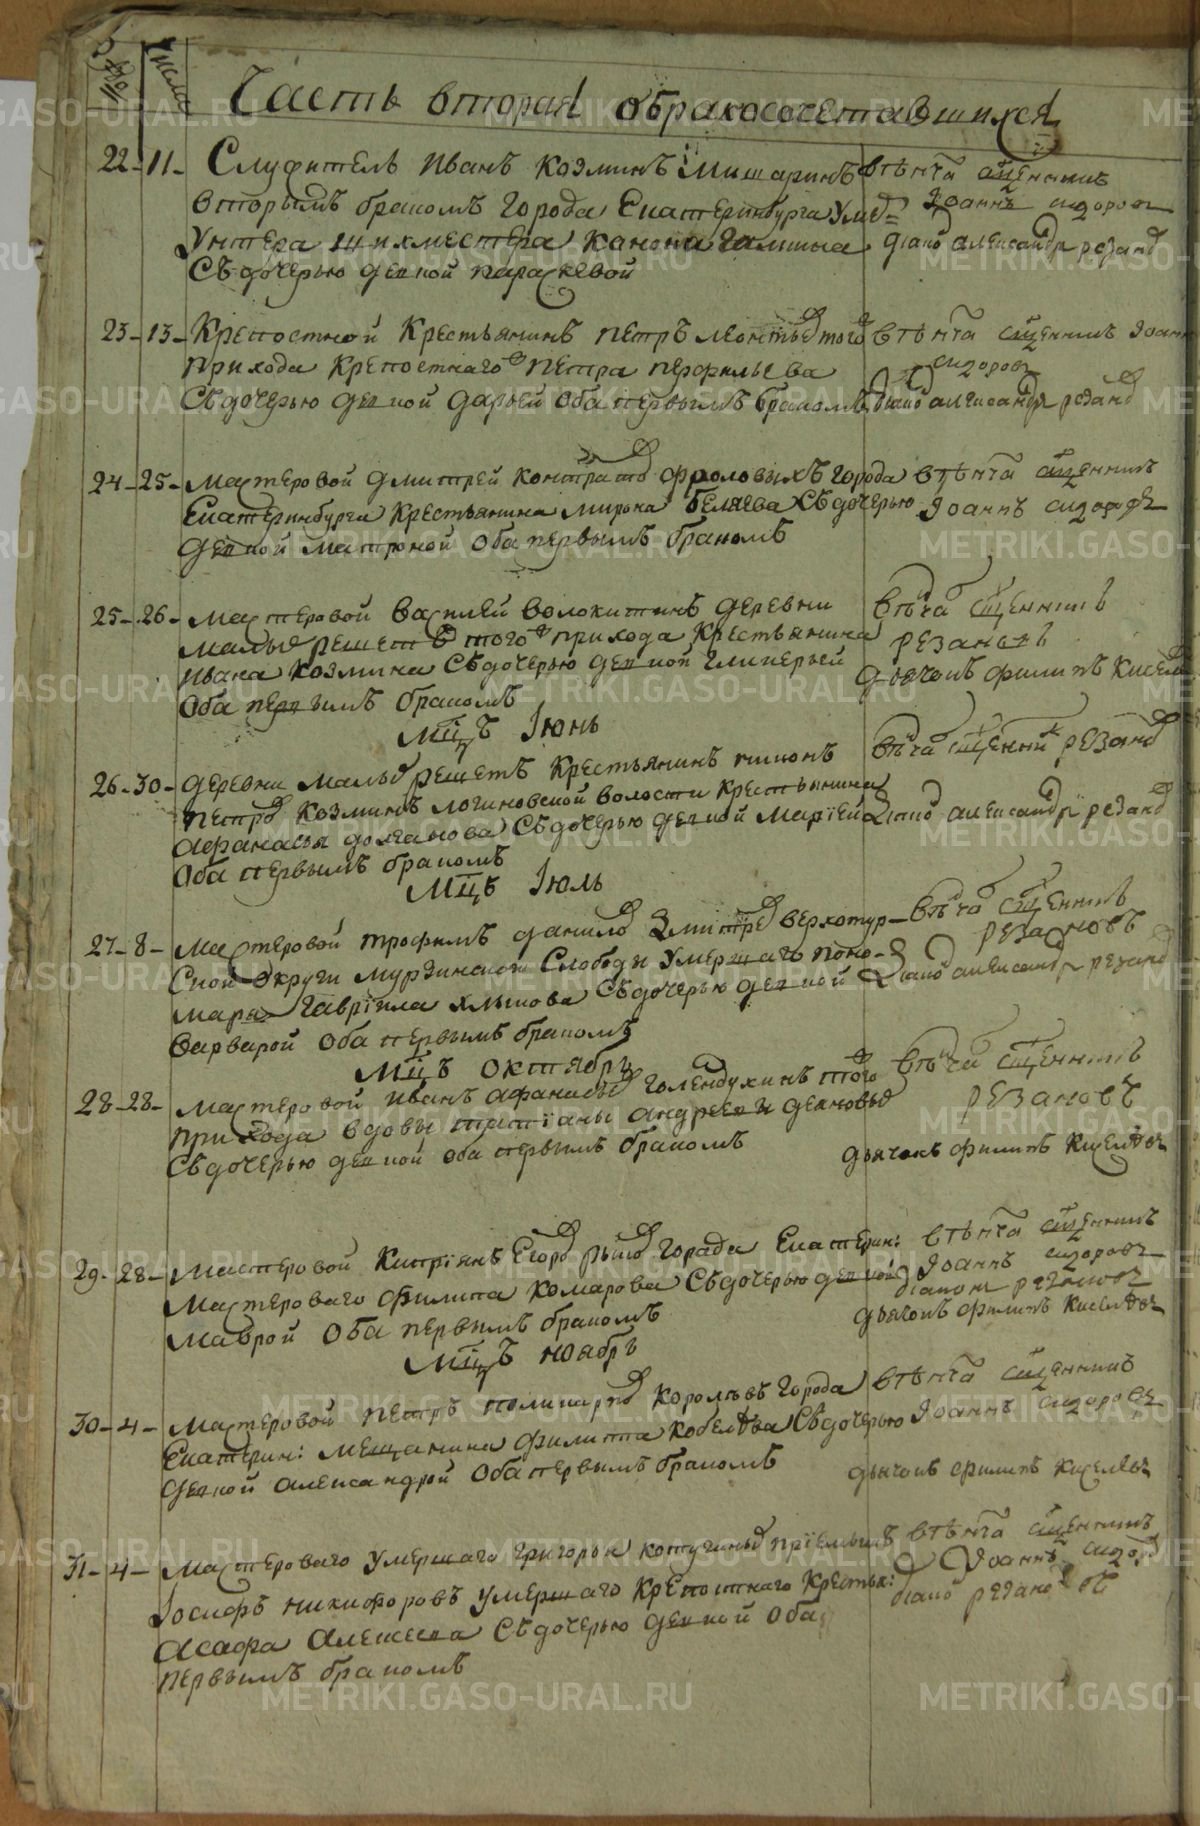 Числа
Часть вторая обракосочетавшихся
22 - 11 - Служитель Иванъ Козминъ Мишаринъ
вторымъ бракомъ города Екатеринбурга умер=
унтера шихмейстера
Съ дочерью девкой параскевой
венча священникъ
Иоаннъ Сидоровъ
диаконъ александръ резано
23 - 13 - Крепостной Крестьянинъ петръ леонтье того
прихода крепостнаго петра перфильева
Съ дочерью девкой дарьей оба первымъ бракомъ
венча священникъ Иоаннъ
сидоровъ
диако александръ резано
24 - 25 - мастеровой дмитрей контрато фроловыхъ города
Екатеринбурга крестьянина мирона беляева Съ дочерью
девкой матроной оба первымъ бракомъ
венча священникъ
Иоаннъ сидоровъ
25 - 26 - мастеровой василей волокитинъ деревни
малые решет того прихода крестьянина
ивана козмина Съ дочерью девкой гликерьей
оба первымъ бракомъ
венча священникъ
резановъ
дьячокъ филипъ Киселе
мцъ Июнь
26 - 30 - деревни малые решетъ крестьянинъ
петро козминъ логиновской волости крестьянина
афанасья Съ дочерью девкой марией
оба первымъ бракомъ
венча священникъ резано
диако александръ резано
мцъ Июль
27 - 8 - мастеровой трофимъ данило верхотур-
ской округи мурзинской слободы умершаго поно-
маря гавриила Съ дочерью девкой
варварой оба первымъ бракомъ
венча священникъ
резановъ
диако александръ резано
мцъ октябрь
28 - 28 - мастеровой иванъ афанасье голендухинъ того
прихода вдовы татианы андреевы
Съ дочерью девкой оба первымъ бракомъ
венча священникъ
резановъ
дьячокъ филипъ Киселевъ
29 - 28 - мастеровой Киприянъ Егоро города Екатерин:
мастероваго филипа комарова Съ дочерью девкой
маврой оба первымъ бракомъ
венча священникъ
Иоаннъ сидоровъ
диаконъ резановъ
дьячокъ филипъ Киселевъ
мцъ ноябрь
30 - 4 - мастеровой петръ поликарпо королевъ города
Екатерин: мещанина филипа кобелева Съ дочерью
девкой александрой оба первымъ бракомъ
венча священникъ
Иоаннъ сидоровъ
дьячокъ филипъ Киселевъ
31 - 4 - мастероваго умершаго григорья приемышъ
Иосифъ никифоровъ умершаго крепостнаго крестья:
асафа алексеева Съ дочерью девкой оба
первымъ бракомъ
венча священникъ
Иоаннъ сидоро
диако резановъ
METRIKI.GASO-URAL.RU